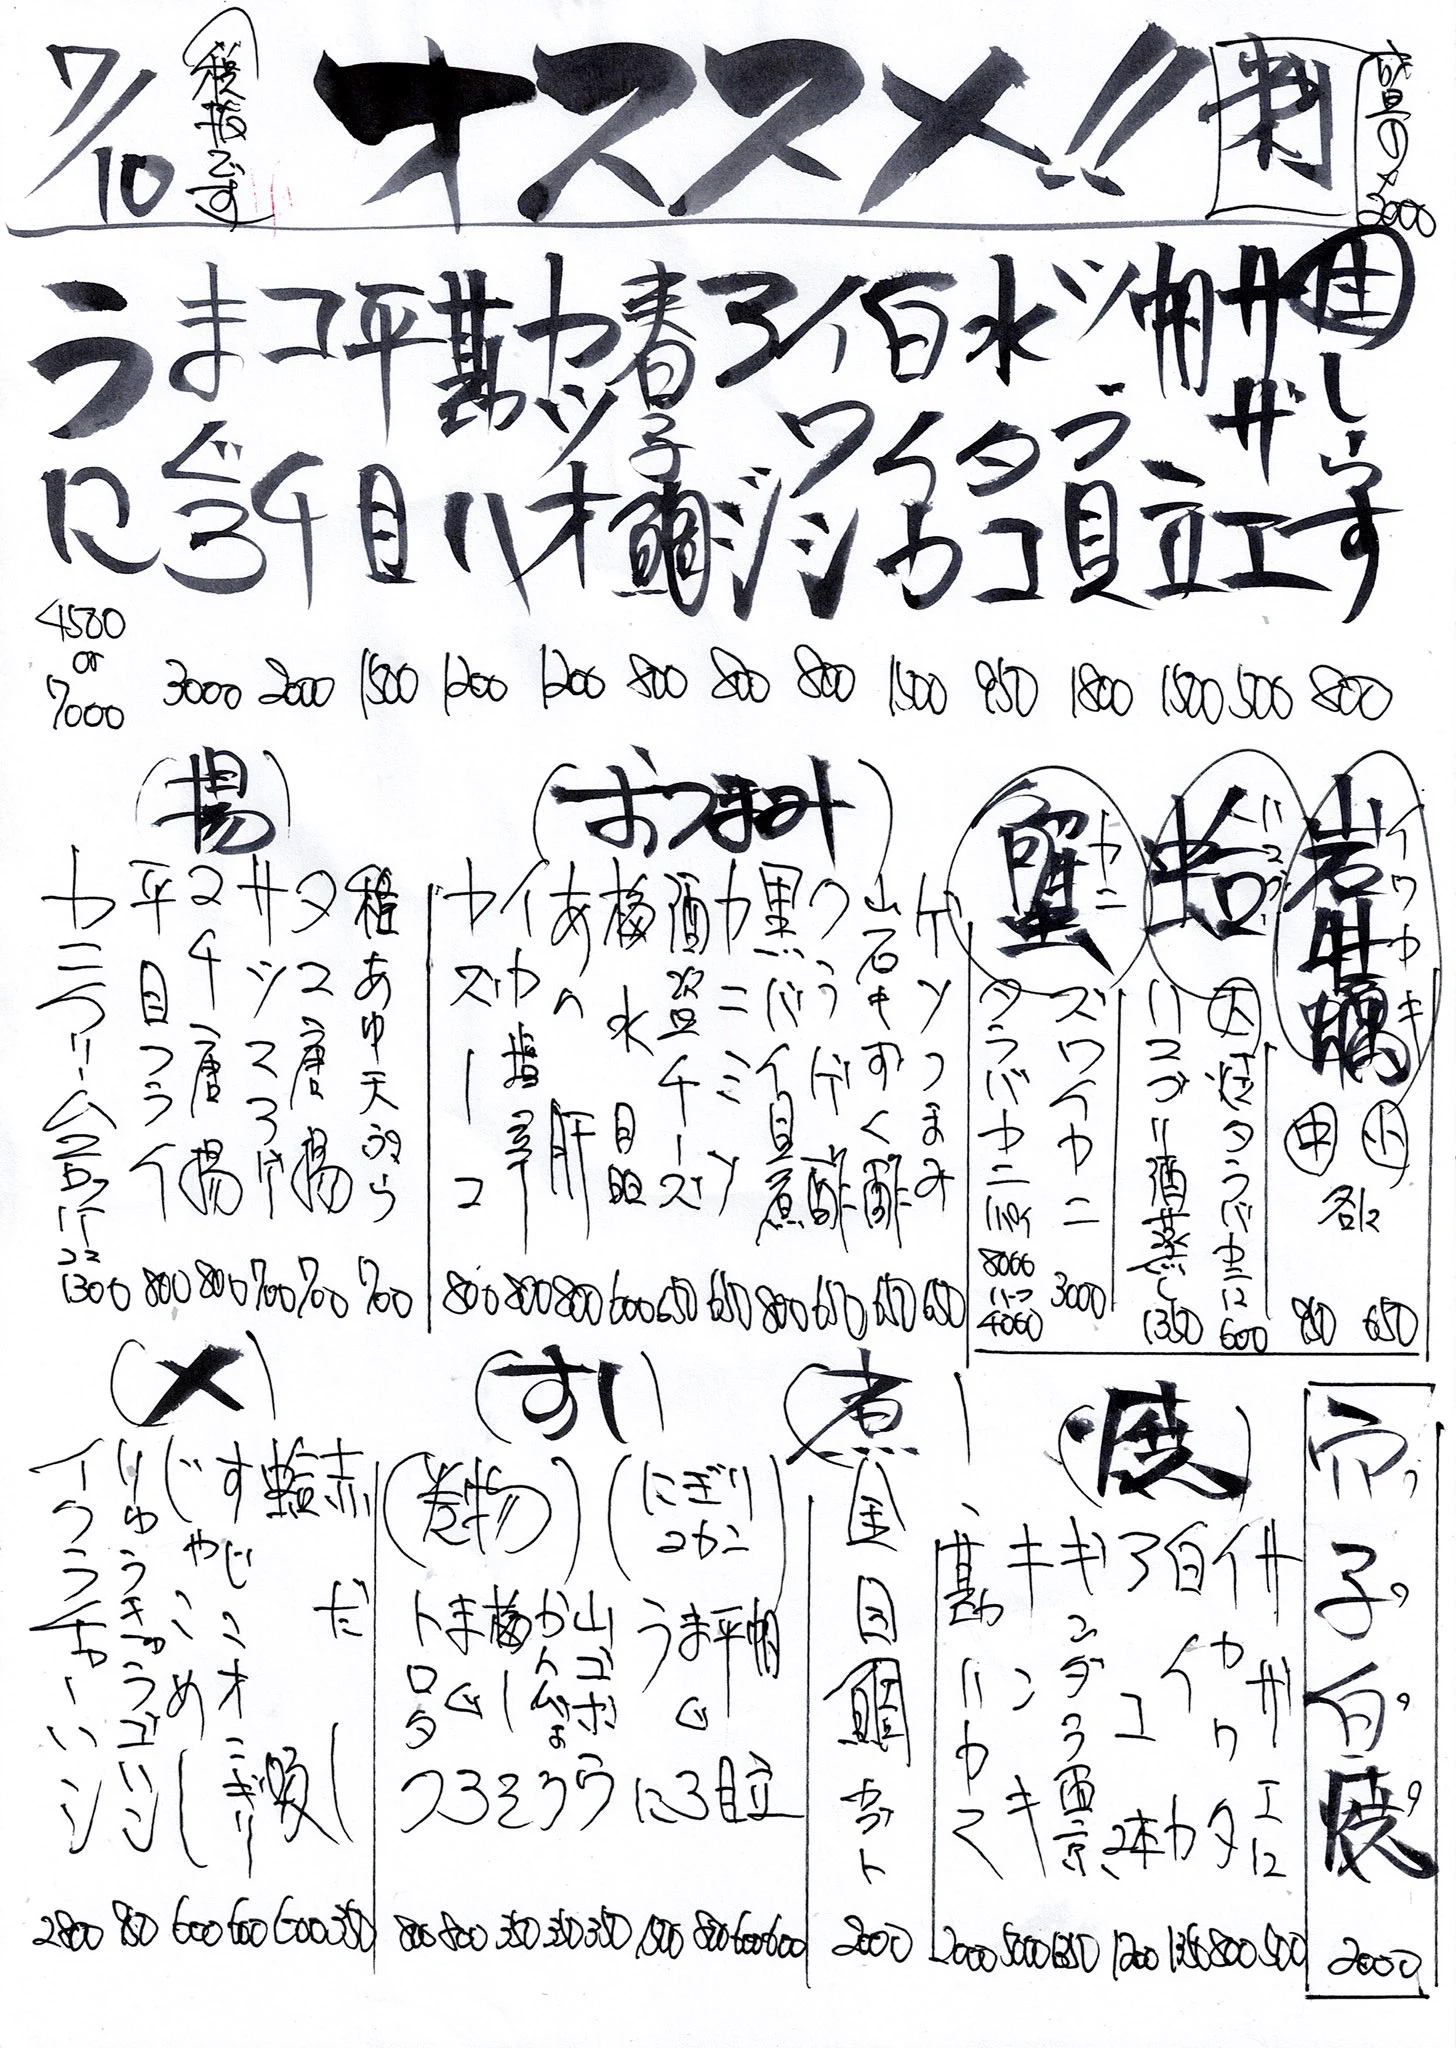 7/10
税抜です
オススメ!!
刺
2000
生しらす
サザエ
帆立
ツブ貝
水タコ
白イカ
イワシ
アジ
春子鯛
カツオ
勘八
平目
コチ
まぐろ
うに
800
500
1500
1800
950
1500
800
800
800
1200
1200
1500
2000
3000
4500
or
7000
岩牡蠣
イワカキ
小
中
各1ヶ
650
950
蛤
ハマグリ
大
焼タラバカニ
600
ハマグリ酒蒸し
1350
蟹
カニ
ズワイカニ
3000
タラバカニ
8000
ハーフ
4000
(おつまみ)
ゲソつまみ
650
岩もずく酢
650
うらげ酢
650
黒バイ貝煮
800
カニミソ
650
酒盗チーズ
650
梅水晶
600
あん肝
800
イカ塩辛
800
カズーコ
800
(揚)
稚あゆ天ぷら
700
タコ唐揚
700
サツマあげ
700
コチ唐揚
800
平目フライ
800
カニクリームコロッケ
1300
穴子白焼
2000
(焼)
サザエ
500
イカワタ
800
白イカ
1350
アユ 2本
1200
ギンダラ西京
1350
キンキ
5000
勘八カマ
2000
(煮)
金目鯛カブト
2000
(すし)
(にぎり 2カン)
帆立
600
平目
600
まぐろ
800
うに
1500
(巻物)
山ゴボウ
350
かんぴょう
350
梅しそ
350
まぐろ
800
トロタク
800
(〆)
赤だし
350
蛤吸
600
すじこオニギリ
600
じゃこめし
600
りゅうきゅう
850
イクラ
2800